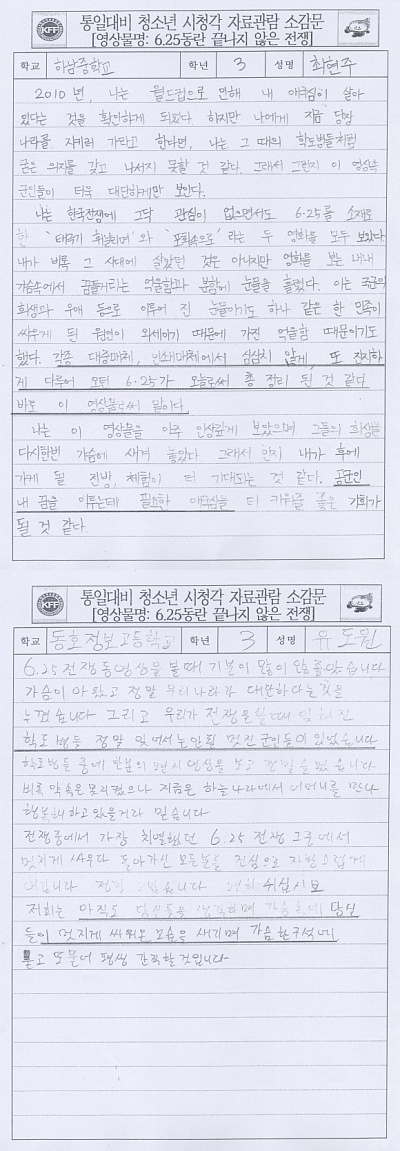 통일대비 청소년 시청각 자료관람 소감문
[영상물명: 6.25동란 끝나지 않은 전쟁]
KFF
학교 하남중학교 학년 3 성명 최현주
2010년, 나는 월드컵으로 인해 내 애국심이 살아
있다는 것을 확인하게 되었다. 하지만 나에게 지금 당장
나라를 지키러 가라고 한다면, 나는 그 때의 학도병들처럼
굳은 의지를 갖고 나서지 못할 것 같다. 그래서 그런지 이 영상속
군인들이 더욱 대단하게만 보인다.
나는 한국전쟁에 그닥 관심이 없으면서도 6.25를 소재로
한 '태극기 휘날리며'와 '포화속으로'라는 두 영화를 모두 보았다.
내가 비록 그 시대에 살았던 것은 아니지만 영화를 보는 내내
가슴속에서 꿈틀거리는 억울함과 분함에 눈물을 흘렸다. 이는 국군의
희생과 우애 등으로 이루어 진 눈물이기도 하나 같은 한 민족이
싸우게 된 원인이 외세이기 때문에 가진 억울함 때문이기도
했다. 각종 대중매체, 인쇄매체에서 심심치 않게, 또 잔잔하
게 다루어 오던 6.25가 오늘로써 총 정리 된 것 같다.
바로 이 영상물로써 말이다.
나는 이 영상물을 아주 인상깊게 보았으며 그들의 희생을
다시한번 가슴에 새겨 놓았다. 그래서 인지 내가 후에
가게 될 전방, 체험이 더 기대되는 것 같다. 공군인
내 꿈을 이루는데 필요한 애국심을 더 키워줄 좋은 기회가
될 것 같다.
통일대비 청소년 시청각 자료관람 소감문
[영상물명: 6.25동란 끝나지 않은 전쟁]
KFF
학교 동호정보고등학교 학년 3 성명 유도원
6.25 전쟁동영상을 볼때 기분이 많이 안좋았습니다
가슴이 아팠고 정말 우리나라가 대단하다는 것을
느꼈습니다 그리고 우리가 전쟁을 할때 잊혀진
학도병들 정말 잊어서는안될 멋진 군인들이 있었습니다
학도병들 중에 한분의 편지 영상을 보고
비록 약속은 못지켰으나 지금은 하늘나라에서 어머니를 만나
행복해 하고 있을거라 믿습니다
전쟁중에서 가장 치열했던 6.25 전쟁 그중에서
멋지게 싸우다 돌아가신 모든분들 진심으로 자랑스럽게
여깁니다 편히 쉬십시오
저희는 아직도 당신들을 생각하며 가슴속에 당신
들이 멋지게 싸워온 모습을 새기며 가슴 한구석에
묻고 또 묻어 평생 간직할 것입니다